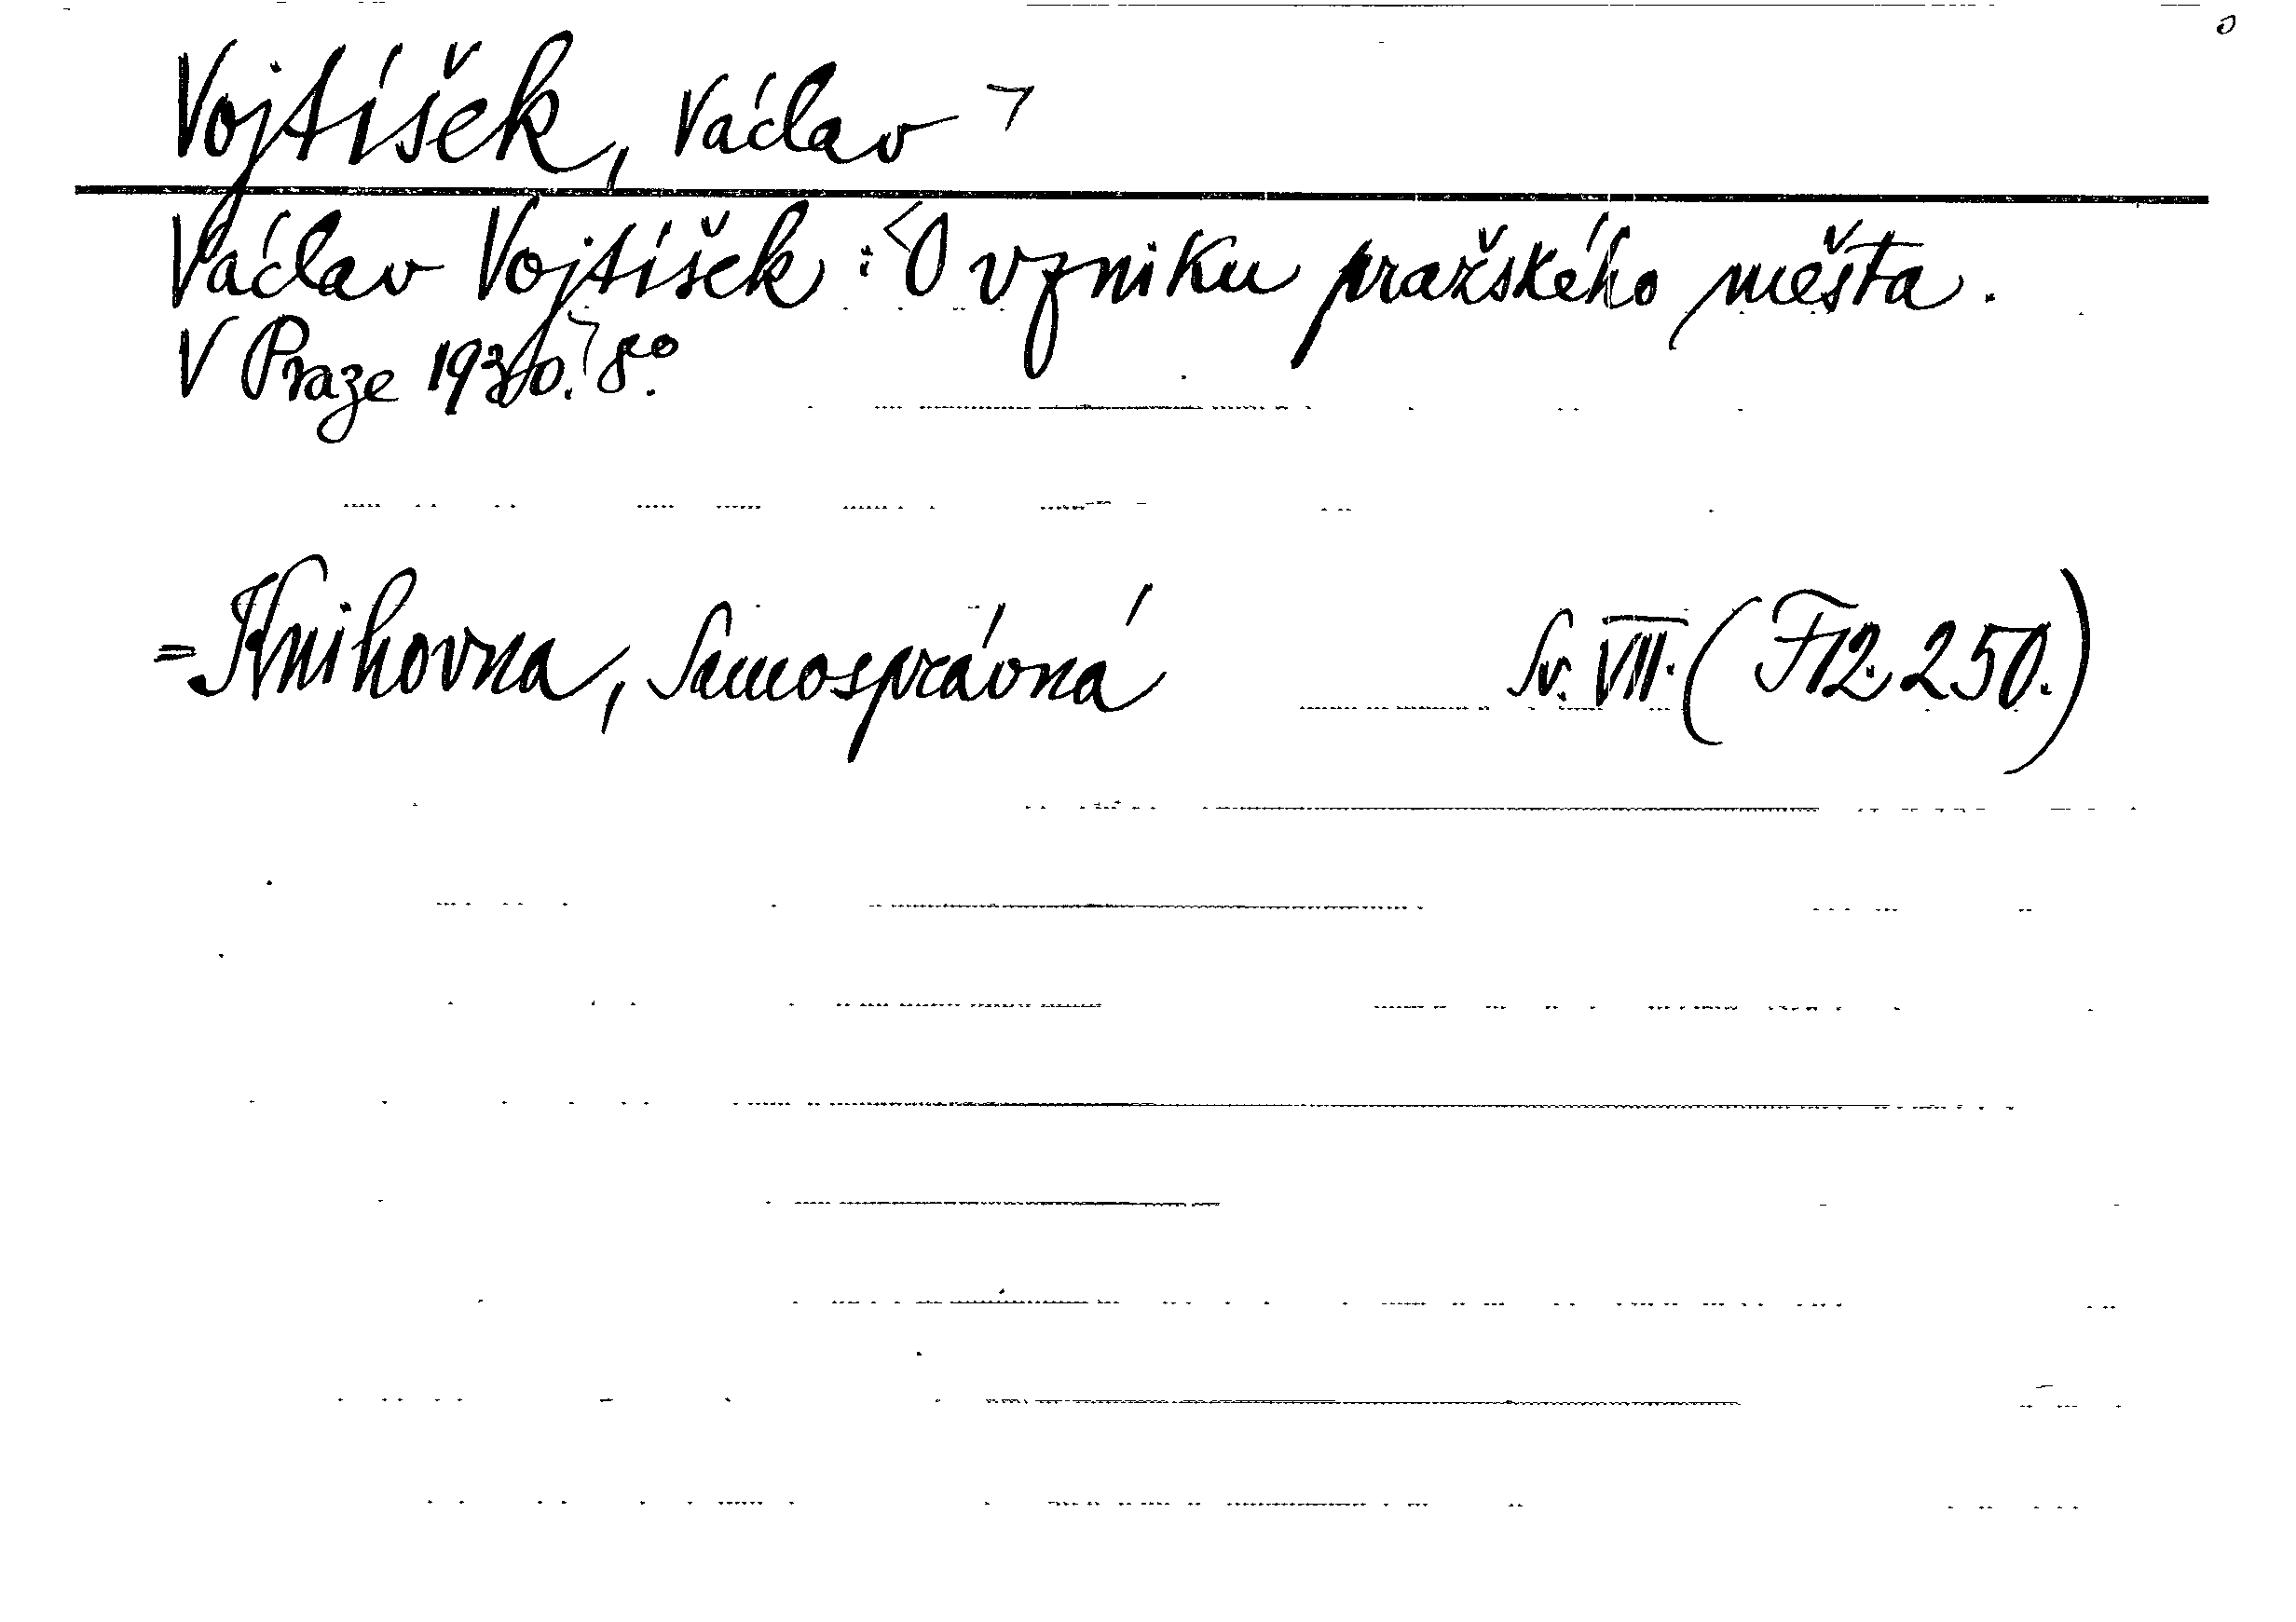 Vojtíšek, Václav
Václav Vojtíšek: O vzniku pražského města.
V Praze 1930. 8°.
=Knihovna, Samosprávná Sv. VII. (F 12. 250.)